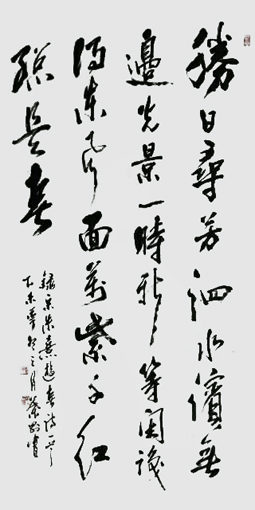 勝日尋芳泗水濱無
邊光景一時新等閑識
得東風面萬紫千紅
總是春
錄宋朱熹遊春詩一首